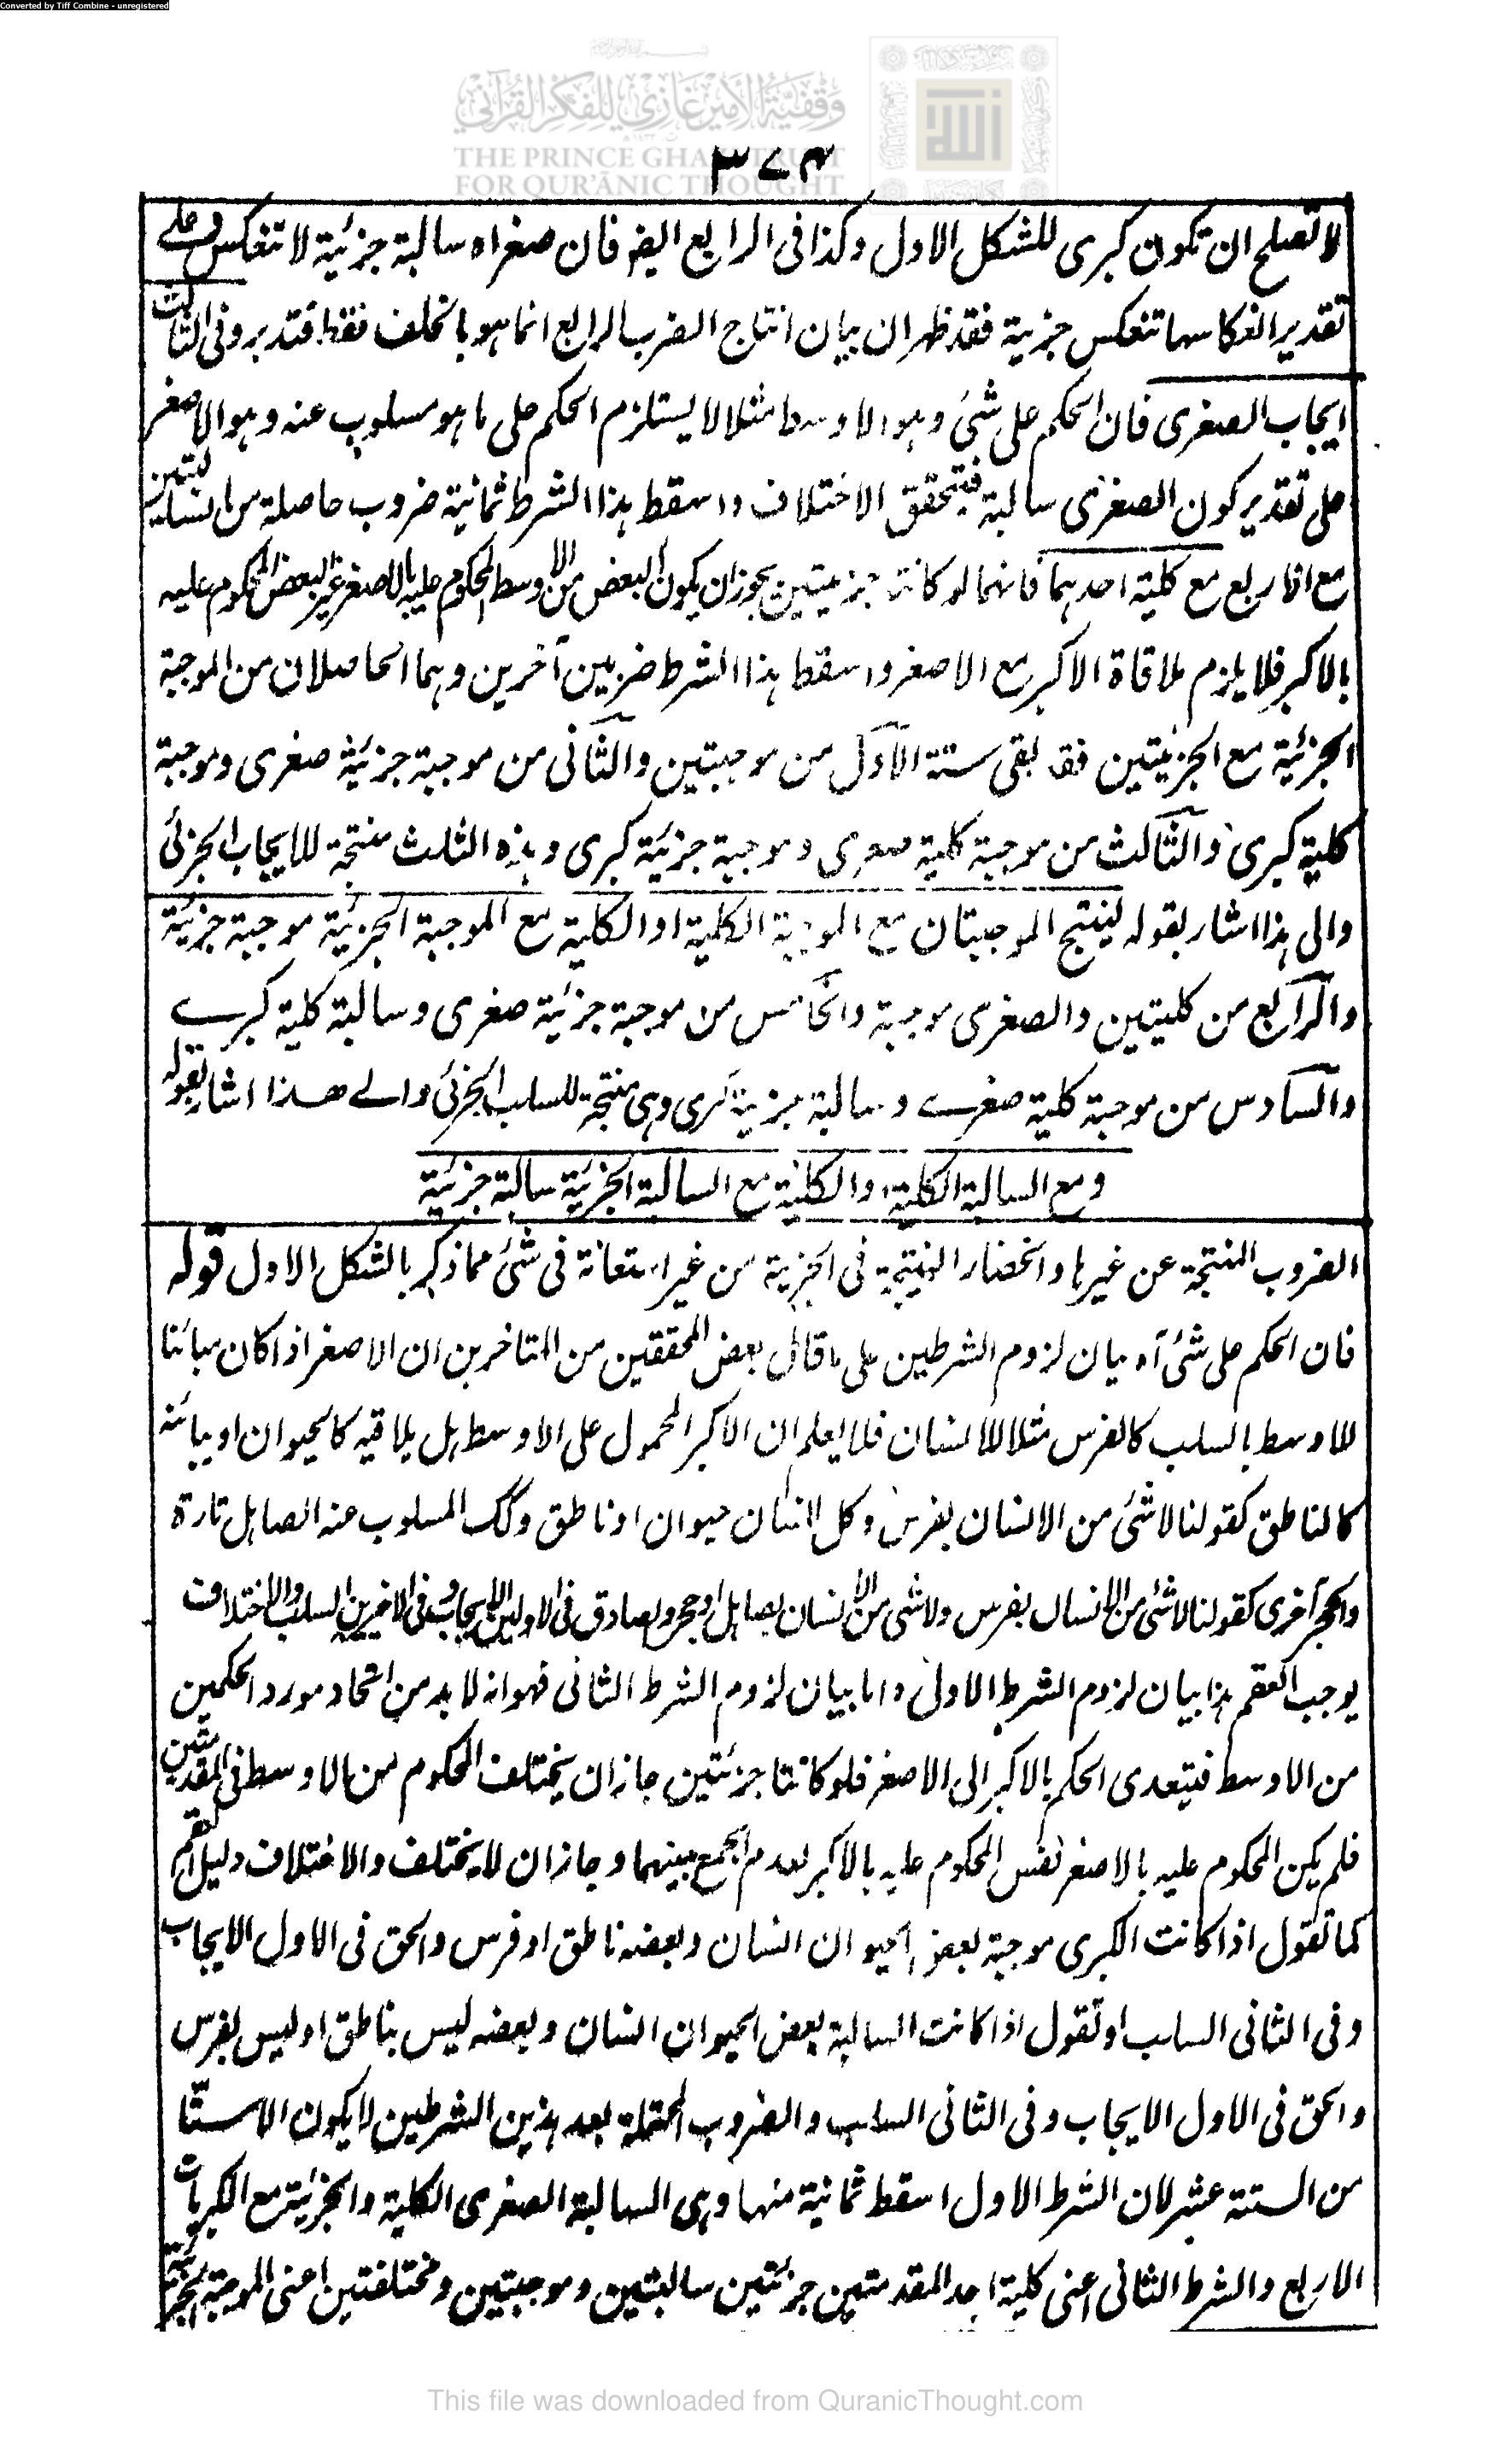 Converted by Tiff Combine - unregistered
وقفية الأمير غازي للفكر القرآني
THE PRINCE GHAZI TRUST
FOR QUR'ĀNIC THOUGHT
٣٧٤
لا تصلح ان تكون كبرى للشكل الاول وكذا فى الرابع ايضو فان صغراه سالبة جزئية لا تنعكس وعلى
تقدير انعكاسها تنعكس جزئية فقد ظهر ان بيان انتاج الضرب الرابع انما هو بالخلف فقط فتدبر وفى الثالث
ايجاب الصغرى فان الحكم على شئ وهو الاوسط مثلا لا يستلزم الحكم على ما هو مسلوب عنه وهو الاصغر
على تقدير كون الصغرى سالبة فيتحقق الاختلاف واسقط هذا الشرط ثمانية ضروب حاصلة من السالبتين
مع الاربع مع كلية احدهما فانهما لو كانتا جزئيتين يجوز ان يكون البعض من الاوسط المحكوم عليه بالاصغر غير البعض المحكوم عليه
بالاكبر فلا يلزم ملاقاة الاكبر مع الاصغر واسقط هذا الشرط ضربين آخرين وهما الحاصلان من الموجبة
الجزئية مع الجزئيتين فقد بقى ستة الاول من موجبتين والثانى من موجبة جزئية صغرى وموجبة
كلية كبرى والثالث من موجبة كلية صغرى وموجبة جزئية كبرى وهذه الثلث منتجة للايجاب الجزئى
والى هذا اشار بقوله لينتج الموجبتان مع الموجبة الكلية او الكلية مع الموجبة الجزئية موجبة جزئية
والرابع من كليتين والصغرى موجبة والخامس من موجبة جزئية صغرى وسالبة كلية كبرے
والسادس من موجبة كلية صغرے وسالبة جزئية كبرى وهى منتجة للسلب الجزئى والے هذا اشار بقوله
ومع السالبة الكلية او الكلية مع السالبة الجزئية سالبة جزئية
الضروب المنتجة عن غيرها وانحصار النتيجة فى الجزئية من غير استعانة فى شئ مما ذكر بالشكل الاول قوله
فان الحكم على شئ آه بيان لزوم الشرطين على ما قال بعض المحققين من المتاخرين ان الاصغر اذا كان مبائنا
للاوسط بالسلب كالفرس مثلا للانسان فلا يعلم ان الاكبر المحمول على الاوسط هل يلاقيه كالحيوان او يبائنه
كالناطق كقولنا لا شئ من الانسان بفرس وكل انسان حيوان او ناطق وكك المسلوب عنه الصاهل تارة
والحجر آخرى كقولنا لا شئ من الانسان بفرس ولا شئ من الانسان بصاهل او حجر والصادق فى الاولين الايجاب وفى الآخرين السلب والاختلاف
يوجب العقم هذا بيان لزوم الشرط الاول واما بيان لزوم الشرط الثانى فهو انه لا بد من اتحاد مورد الحكمين
من الاوسط فيتعدى الحكم بالاكبر الى الاصغر فلو كانتا جزئتين جاز ان يختلف المحكوم من الاوسط فى المقدمتين
فلم يكن المحكوم عليه بالاصغر نفس المحكوم عليه بالاكبر لعدم الجمع بينهما وجاز ان لا يختلف والاختلاف دليل العقم
كما تقول اذا كانت الكبرى موجبة بعض الحيوان انسان وبعضه ناطق او فرس والحق فى الاول الايجاب
وفى الثانى السلب او تقول اذا كانت السالبة بعض الحيوان انسان وبعضه ليس بناطق او ليس بفرس
والحق فى الاول الايجاب وفى الثانى السلب والضروب المحتملة بعد هذين الشرطين لا يكون الا ستا
من الستة عشر لان الشرط الاول اسقط ثمانية منها وهى السالبة الصغرى الكلية والجزئية مع الكبريات
الاربع والشرط الثانى اعنى كلية احد المقدمتين جزئتين سالبتين وموجبتين ومختلفتين اعنى الموجبة الجزئية
This file was downloaded from QuranicThought.com